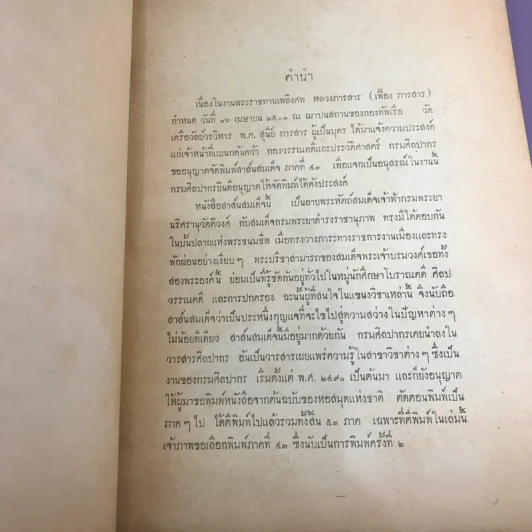 คำนำ
เนื่องในงานพระราชทานเพลิงศพ หลวงภารสาร (เฟื่อง ภารสาร)
กำหนด วันที่ ๑๖ เมษายน ๒๕๐๓ ณ ฌาปนสถานของกองทัพเรือ วัด
เครือวัลย์วรวิหาร พ.ต. สุนีย์ ภารสาร ผู้เป็นบุตร ได้มาแจ้งความประสงค์
แก่เจ้าหน้าที่แผนกค้นคว้า กองวรรณคดีและประวัติศาสตร์ กรมศิลปากร
ขออนุญาตจัดพิมพ์สาส์นสมเด็จ ภาคที่ ๔๓ เพื่อแจกเป็นอนุสรณ์ในงานนี้
กรมศิลปากรยินดีอนุญาตให้จัดพิมพ์ได้ดังประสงค์
หนังสือสาส์นสมเด็จนี้ เป็นลายพระหัตถ์สมเด็จเจ้าฟ้ากรมพระยา
นริศรานุวัดติวงศ์ กับสมเด็จกรมพระยาดำรงราชานุภาพ ทรงมีโต้ตอบกัน
ในบั้นปลายแห่งพระชนมชีพ เมื่อทรงวางภาระทางราชการงานเมืองและทรง
พักผ่อนอย่างเงียบๆ พระปรีชาสามารถของสมเด็จพระเจ้าบรมวงศ์เธอทั้ง
สองพระองค์นี้ ย่อมเป็นที่รู้ชัดกันอยู่ทั่วไปในหมู่นักศึกษาโบราณคดี ศิลป
วรรณคดี และการปกครอง ฉะนั้นผู้ที่สนใจในแขนงวิชาเหล่านี้ จึงนับถือ
สาส์นสมเด็จว่าเป็นประหนึ่งกุญแจที่จะไขไปสู่ความสว่างในปัญหาต่างๆ
ไม่น้อยทีเดียว สาส์นสมเด็จนี้มีอยู่มากด้วยกัน กรมศิลปากรเคยนำลงใน
วารสารศิลปากร อันเป็นวารสารเผยแพร่ความรู้ในสาขาวิชาต่างๆ ซึ่งเป็น
งานของกรมศิลปากร เริ่มตั้งแต่ พ.ศ. ๒๔๙๐ เป็นต้นมา และก็ยังอนุญาต
ให้ผู้มาขอพิมพ์หนังสือจากต้นฉบับของหอสมุดแห่งชาติ ตัดตอนพิมพ์เป็น
ภาคๆ ไป ได้ตีพิมพ์ไปแล้วรวมทั้งสิ้น ๕๓ ภาค เฉพาะที่ตีพิมพ์ในเล่มนี้
เจ้าภาพขอเลือกพิมพ์ภาคที่ ๔๓ ซึ่งนับเป็นการพิมพ์ครั้งที่ ๒